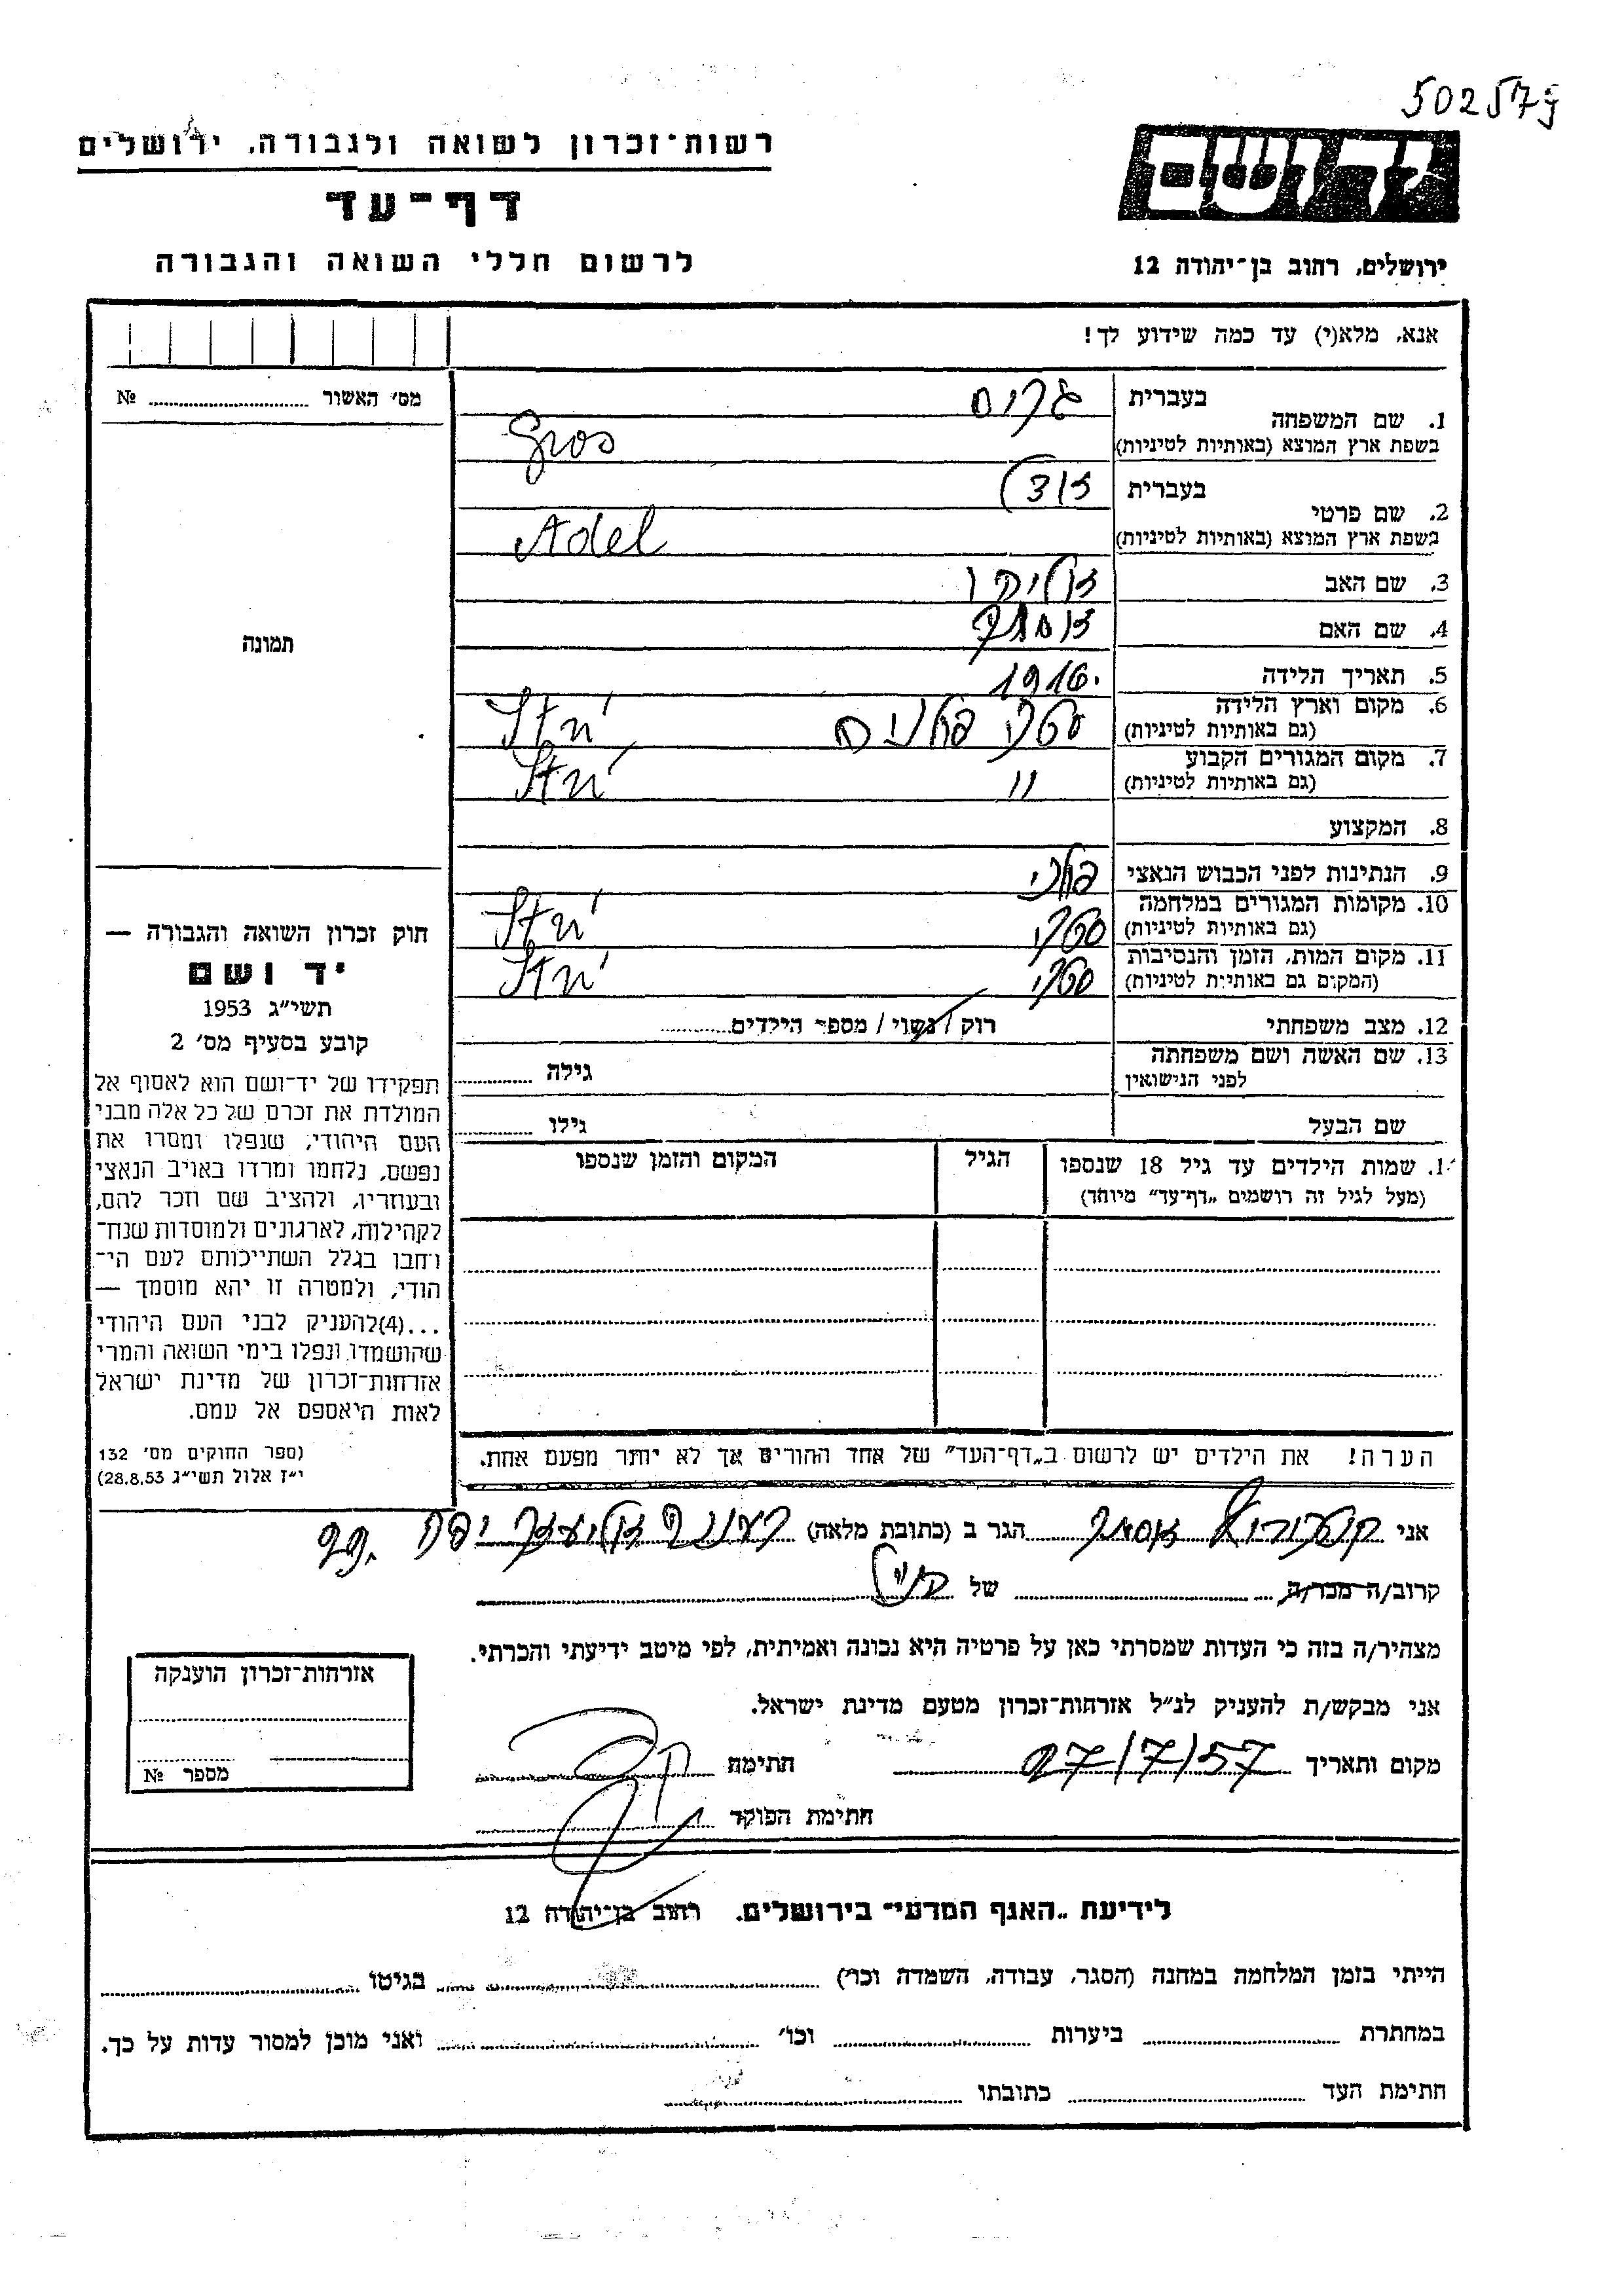 502579
רשות־זכרון לשואה ולגבורה, ירושלים
דף־עד
לרשום חללי השואה והגבורה
יד ושם
ירושלים, רחוב בן־יהודה 12
אנא, מלא(י) עד כמה שידוע לך!
מס׳ האשור № 
1. שם המשפחה
בעברית גרוס
בשפת ארץ המוצא (באותיות לטיניות) Gros
2. שם פרטי
בעברית אדל
בשפת ארץ המוצא (באותיות לטיניות) Adel
3. שם האב
4. שם האם אסתר
5. תאריך הלידה 1916.
6. מקום וארץ הלידה
(גם באותיות לטיניות) סטרי פולניה Stri
7. מקום המגורים הקבוע
(גם באותיות לטיניות) " Stri
8. המקצוע
9. הנתינות לפני הכבוש הנאצי פולני
10. מקומות המגורים במלחמה
(גם באותיות לטיניות) סטרי Stri
11. מקום המות, הזמן והנסיבות
(המקום גם באותיות לטיניות) סטרי Stri
12. מצב משפחתי רוק / נשוי / מספר הילדים
13. שם האשה ושם משפחתה
לפני הנישואין גילה
שם הבעל גילו
1. שמות הילדים עד גיל 18 שנספו
(מעל לגיל זה רושמים „דף־עד" מיוחד)
הגיל
המקום והזמן שנספו
הערה! את הילדים יש לרשום ב„דף־העד" של אחד ההורים אך לא יותר מפעם אחת.
תמונה
חוק זכרון השואה והגבורה —
יד ושם
תשי״ג 1953
קובע בסעיף מס׳ 2
תפקידו של יד־ושם הוא לאסוף אל
המולדת את זכרם של כל אלה מבני
העם היהודי, שנפלו ומסרו את
נפשם, נלחמו ומרדו באויב הנאצי
ובעוזריו, ולהציב שם וזכר להם,
לקהילות, לארגונים ולמוסדות שנח־
רחבו בגלל השתייכותם לעם הי־
הודי, ולמטרה זו יהא מוסמך —
...(4)להעניק לבני העם היהודי
שהושמדו ונפלו בימי השואה והמרי
אזרחות־זכרון של מדינת ישראל
לאות היאספם אל עמם.
(ספר החוקים מס׳ 132
י״ז אלול תשי״ג 28.8.53)
אני אסתר הגר ב (כתובת מלאה) 99.
קרוב/ה מכר/ה של
מצהיר/ה בזה כי העדות שמסרתי כאן על פרטיה היא נכונה ואמיתית, לפי מיטב ידיעתי והכרתי.
אני מבקש/ת להעניק לנ״ל אזרחות־זכרון מטעם מדינת ישראל.
מקום ותאריך 27/7/57 חתימה
חתימת הפוקד
אזרחות־זכרון הוענקה
מספר №
לידיעת „האגף המדעי" בירושלים, רחוב בן־יהודה 12
הייתי בזמן המלחמה במחנה (הסגר, עבודה, השמדה וכו׳) בגיטו
במחתרת ביערות וכו׳ ואני מוכן למסור עדות על כך.
חתימת העד כתובתו